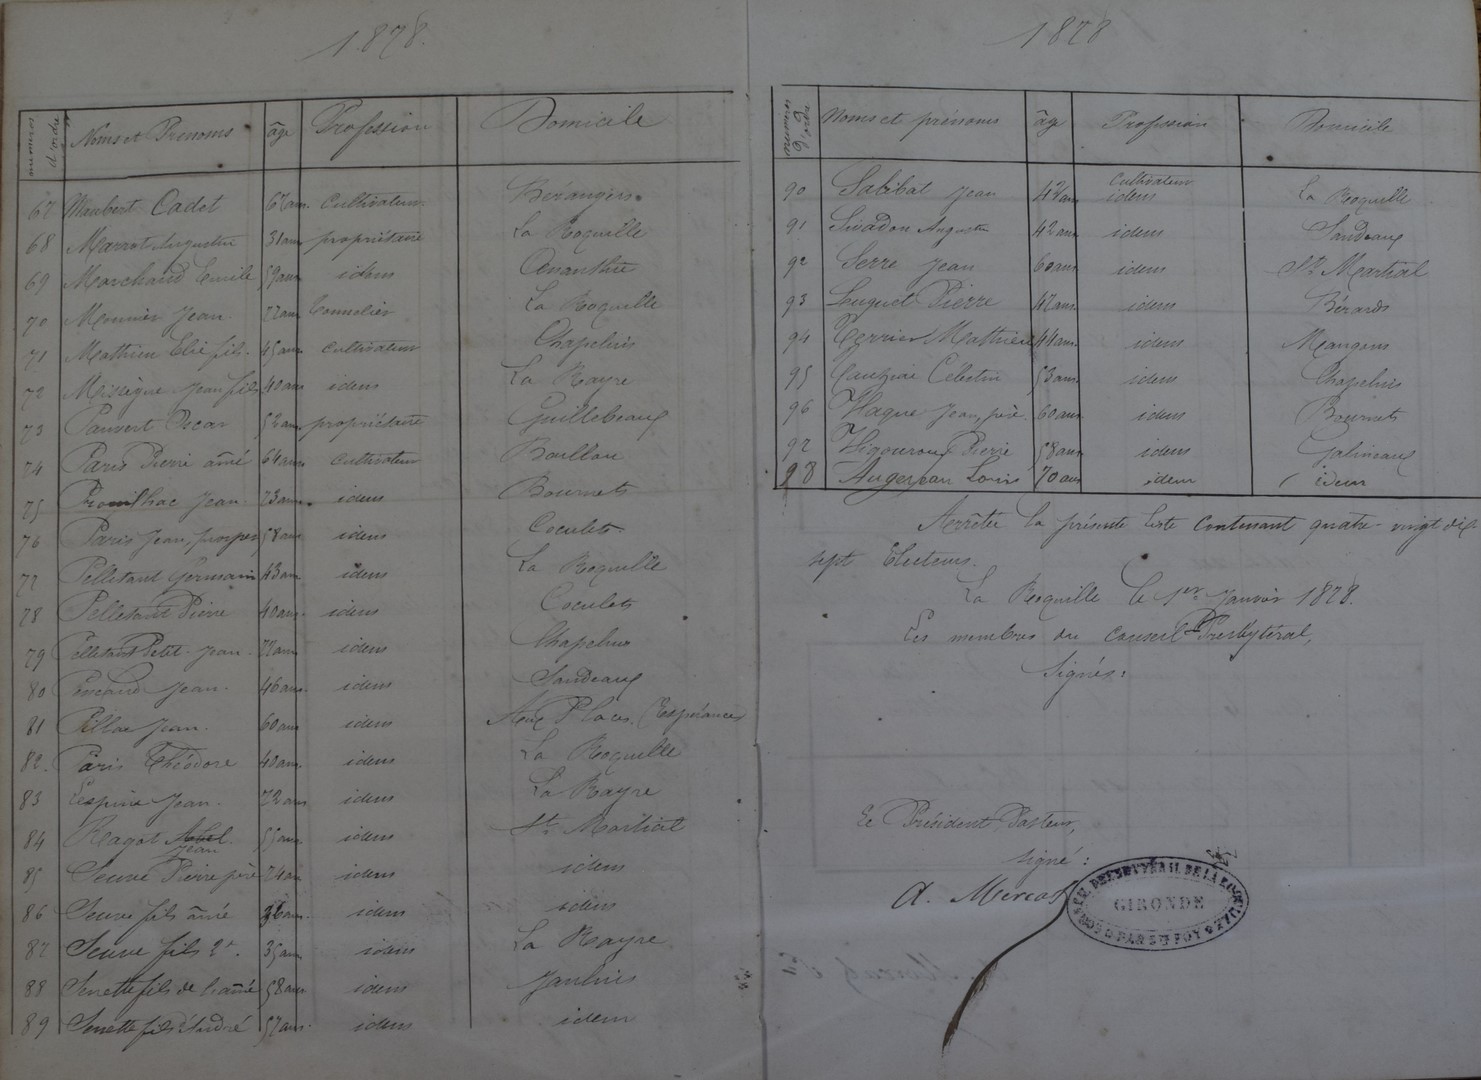 1878.
numéros d'ordre Noms et Prénoms âge Profession Domicile
67 Maubert Cadet 67 ans. Cultivateur. Bérangers.
68 Marrot Augustin 31 ans propriétaire La Roquille
69 Marchand Emile 59 ans idem
70 Mounier Jean. 77 ans Tonnelier La Roquille
71 Mathieu Elie fils. 45 ans cultivateur Chapelins
72 Jean fils 40 ans idem La Rayre
73 Pauvert Oscar 52 ans propriétaire Guillebeaux
74 Paris Pierre aîné 64 ans cultivateur Bouillau
75 Prouilhac Jean 73 ans. idem Bournets
76 Paris Jean, prosper 58 ans idem Coculets
77 Pelletant Germain 43 ans idem La Roquille
78 Pelletant Pierre 40 ans. idem Coculets
79 Pelletant Petit-Jean idem Chapelins
80 Jean. 46 ans. idem Sandeaux
81 Pillac Jean. 60 ans idem Places
82. Paris Théodore 40 ans. idem La Roquille
83 Jean. 72 ans idem La Rayre
84 Ragot Jean 55 ans. idem St. Martial
85 Seuve Pierre père 74 an idem idem
86 Seuve fils aîné 36 ans. idem idem
87 Seuve fils 2e. 35 ans idem La Rayre
88 fils de l'aîné 58 ans idem Jaulins
89 fils d'André 57 ans. idem idem
1878
numéros d'ordre Noms et prénoms âge Profession Domicile
cultivateur
90 Salibat Jean idem La Roquille
91 Sivadon Auguste 42 ans idem Sandeaux
92 Serre Jean 60 ans idem St. Martial
93 Pierre 47 ans idem Bérards
94 Terrier Mathieu 44 ans. idem Mangons
95 Célestin 53 ans. idem Chapelins
96 Jean, père. 60 ans idem Bournets
97 Vigouroux Pierre 58 ans idem Galineaux
98 Augereau Louis 70 ans idem idem
Arrêter la présente liste contenant quatre-vingt dix
sept Electeurs.
La Roquille le 1er Janvier 1878.
Les membres du Conseil Presbytéral,
Signés:
Le Président Pasteur,
Signé:
A. Mercat
GIRONDE